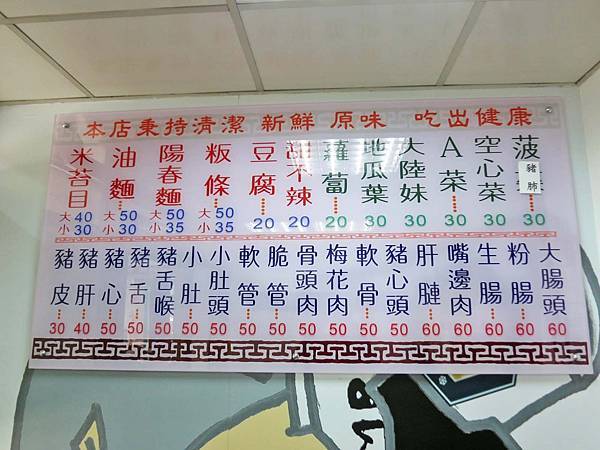 本店秉持清潔 新鮮 原味 吃出健康
米苔目 大40 小30
油麵 大50 小30
陽春麵 大50 小35
粄條 大50 小35
豆腐 20
甜不辣 20
蘿蔔 20
地瓜葉 30
大陸妹 30
A菜 30
空心菜 30
菠 豬肺 30
豬皮 30
豬肝 40
豬心 50
豬舌 50
豬舌喉 50
小肚 50
小肚頭 50
軟管 50
脆管 50
骨頭肉 50
梅花肉 50
軟骨 50
豬心頭 50
肝腱 60
嘴邊肉 60
生腸 60
粉腸 60
大腸頭 60